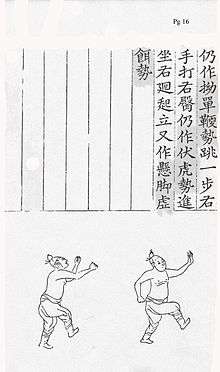 Pg 16
仍作拗單鞭勢跳一步右
手打右臀仍作伏虎勢進
坐右廻起立又作懸脚虛
餌勢